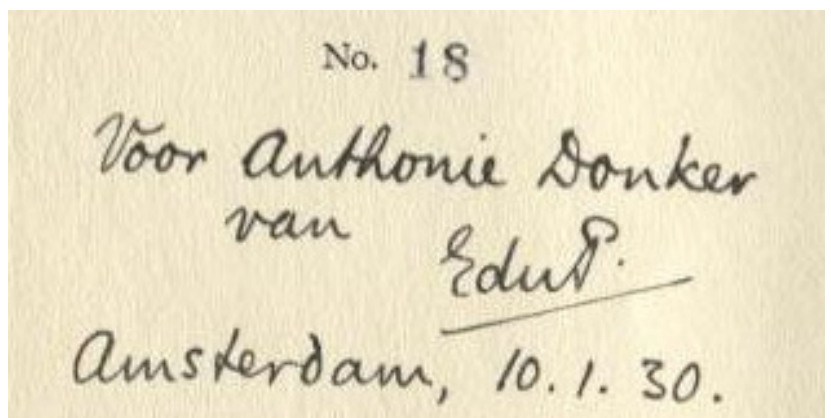 No. 18
Voor Anthonie Donker
van
EduP.
Amsterdam, 10.1.30.